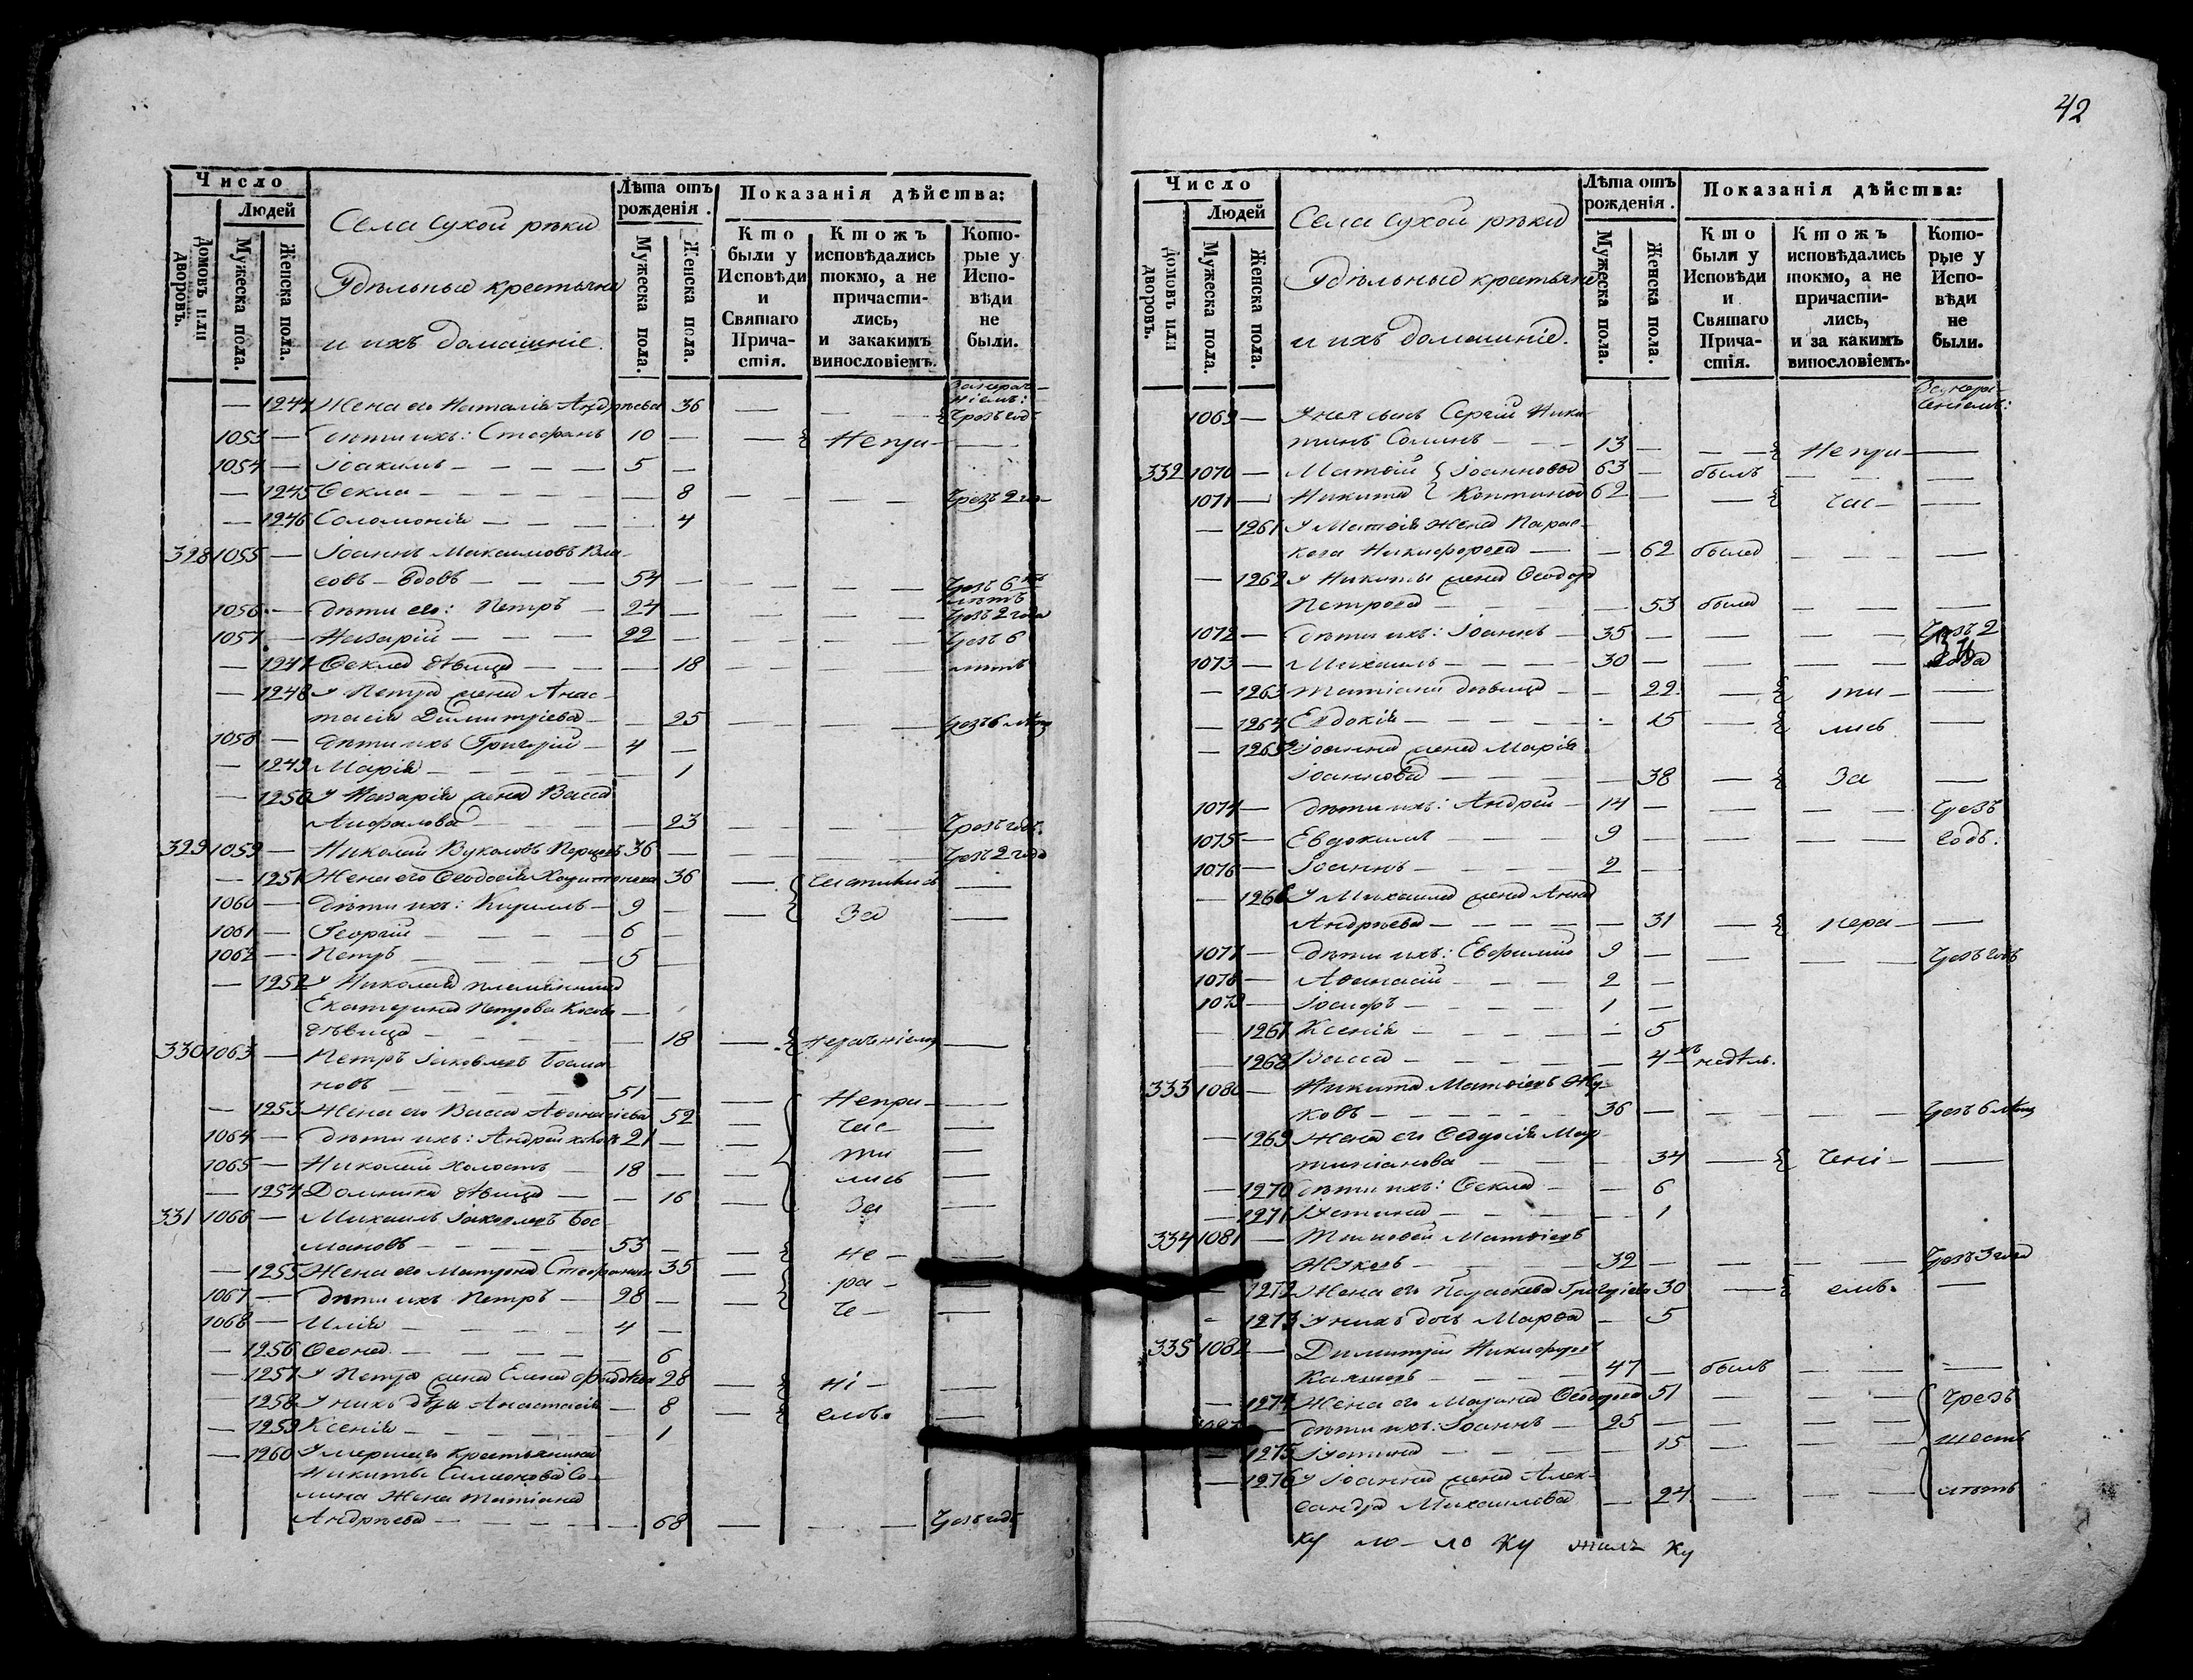 42
Число
Людей
Домовъ или дворовъ.
Мужеска пола.
Женска пола.
Села Сухой рѣки
Удѣльные крестьяне
и ихъ домашніе.
Лѣта отъ рожденія.
Мужеска пола.
Женска пола.
Показанія дѣйства:
Кто были у Исповѣди и Святаго Причастія.
Ктожъ исповѣдались токмо, а не причастились, и закакимъ винословіемъ.
Которые у Исповѣди не были.
— 1244 Жена его Наталія Андреева 36 — — Чрезъ годъ
1053 — Дѣти ихъ: Стефанъ 10 — — Непри— —
1054 — Іоакимъ — 5 —
— 1245 Ѳекла — 8 — — Чрезъ 2 го—
— 1246 Соломонія — 4
328 1055 — Іоаннъ Максимовъ Вла
совъ — вдовъ — 54 — — Чрезъ 6
лѣтъ
1056 — Дѣти его: Петръ — 24 — — Чрезъ 2 года
1057 — Назарій — 22 — — Чрезъ 6
— 1247 Ѳекла дѣвица — 18 — — лѣтъ
— 1248 У Петра жена Анас—
тасія Димитріева — 25 — — Чрезъ 6 лѣтъ
1058 — Дѣти ихъ Григорій — 4 —
— 1249 Марія — 1
— 1250 У Назарія жена Васса
— 23 — — Чрезъ годъ.
329 1059 — Николай Вуколовъ 36 — — Чрезъ 2 года
— 1251 Жена его Ѳеодосія Харитонова 36 — частились —
1060 — Дѣти ихъ: Кириллъ — 9 — — За —
1061 — Георгій — 6 —
1062 — Петръ — 5 —
— 1252 У Николая племянница
Екатерина Петрова
дѣвица — 18 — нераченіемъ —
330 1063 — Петръ Іаковлевъ Босма
новъ — 51 — — Непри— —
— 1253 Жена его Васса Аѳанасіева 52 — час— —
1064 — Дѣти ихъ: Андрей холостъ 21 — — ти —
1065 — Николай холостъ — 18 — — лись —
— 1254 Домника дѣвица — 16 — За —
331 1066 — Михаилъ Іаковлевъ Бос—
мановъ — 53 — — не— —
— 1255 Жена его Матрона Стефанова 35 — ра— —
1067 — Дѣти ихъ Петръ — 28 — — че— —
1068 — Илія — 4 —
— 1256 — 6
— 1257 У Петра жена Елена 28 — ні— —
— 1258 У нихъ дѣти Анастасія — 8 — емъ. —
— 1259 Ксенія — 1
— 1260 Умершаго крестьянина
Никиты Симеонова Со—
лина жена Татіана
Андреева — 68 — — Чрезъ годъ
Число
Людей
Домовъ или дворовъ.
Мужеска пола.
Женска пола.
Села Сухой рѣки
Удѣльные крестьяне
и ихъ домашніе.
Лѣта отъ рожденія.
Мужеска пола.
Женска пола.
Показанія дѣйства:
Кто были у Исповѣди и Святаго Причастія.
Ктожъ исповѣдались токмо, а не причастились, и за какимъ винословіемъ.
Которые у Исповѣди не были.
1069 — У нея сынъ Сергій Ники
тинъ Солинъ — 13 — — Непри— —
332 1070 — Матѳій Іоанновы 63 — былъ — —
1071 — Никита 62 — — час— —
— 1261 У Матѳія жена Парас—
кева Никифорова — 62 была — —
— 1262 У Никиты жена Ѳеодора
Петрова — 53 была — —
1072 — Дѣти ихъ: Іоаннъ — 35 — — Чрезъ 2
1073 — Михаилъ — 30 — — года
— 1263 Татіана дѣвица — 22 — ти— —
— 1264 Евдокія — 15 — лись —
— 1265 У Іоанна жена Марія
Іоаннова — 38 — За —
1074 — Дѣти ихъ: Андрей — 14 — — Чрезъ
1075 — Евдокимъ — 9 — — годъ.
1076 — Іоаннъ — 2 —
— 1266 У Михаила жена Анна
Андреева — 31 — нера— —
1077 — Дѣти ихъ: Евфимій 9 — — Чрезъ годъ
1078 — Аѳанасій — 2 —
1079 — Іосифъ — 1 —
— 1267 Ксенія — 5
— 1268 Васса — 4 недѣль.
333 1080 — Никита Матѳіевъ Жу—
ковъ — 36 — — Чрезъ 6 лѣтъ
— 1269 Жена его Ѳеодосія Мар
тиніанова — 34 — чені— —
— 1270 Дѣти ихъ: Ѳекла — 6
— 1271 Іустина — 1
334 1081 — Тимоѳей Матѳіевъ
Жуковъ — 32 — — Чрезъ 3 года
— 1272 Жена его Параскева Григоріева 30 — емъ. —
— 1273 У нихъ дочь Марѳа — 5
335 1082 — Димитрій Никифоровъ
47 — былъ — —
— 1274 Жена его Марина Ѳеодорова 51 — — Чрезъ
— Дѣти ихъ: Іоаннъ — 25 — — шесть
— 1275 Іустина — 15 — —
— 1276 У Іоанна жена Алек—
сандра Михаилова — 24 — — лѣтъ